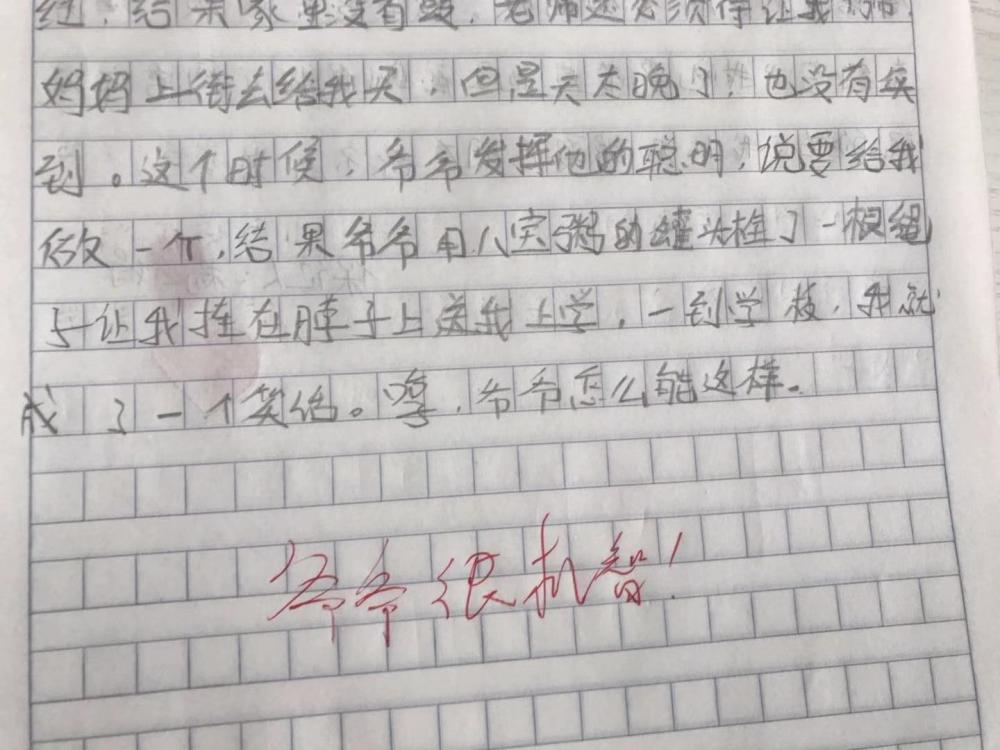 结果家里没有鼓，老师还必须得让我
妈妈上街去给我买，但是天太晚了，也没有卖
到。这个时候，爷爷发挥他的聪明，说要给我
做一个，结果爷爷用八宝粥的罐头栓了一根绳
子让我挂在脖子上送我上学，一到学校，我就
成了一个笑话。哼，爷爷怎么能这样。
爷爷很机智！